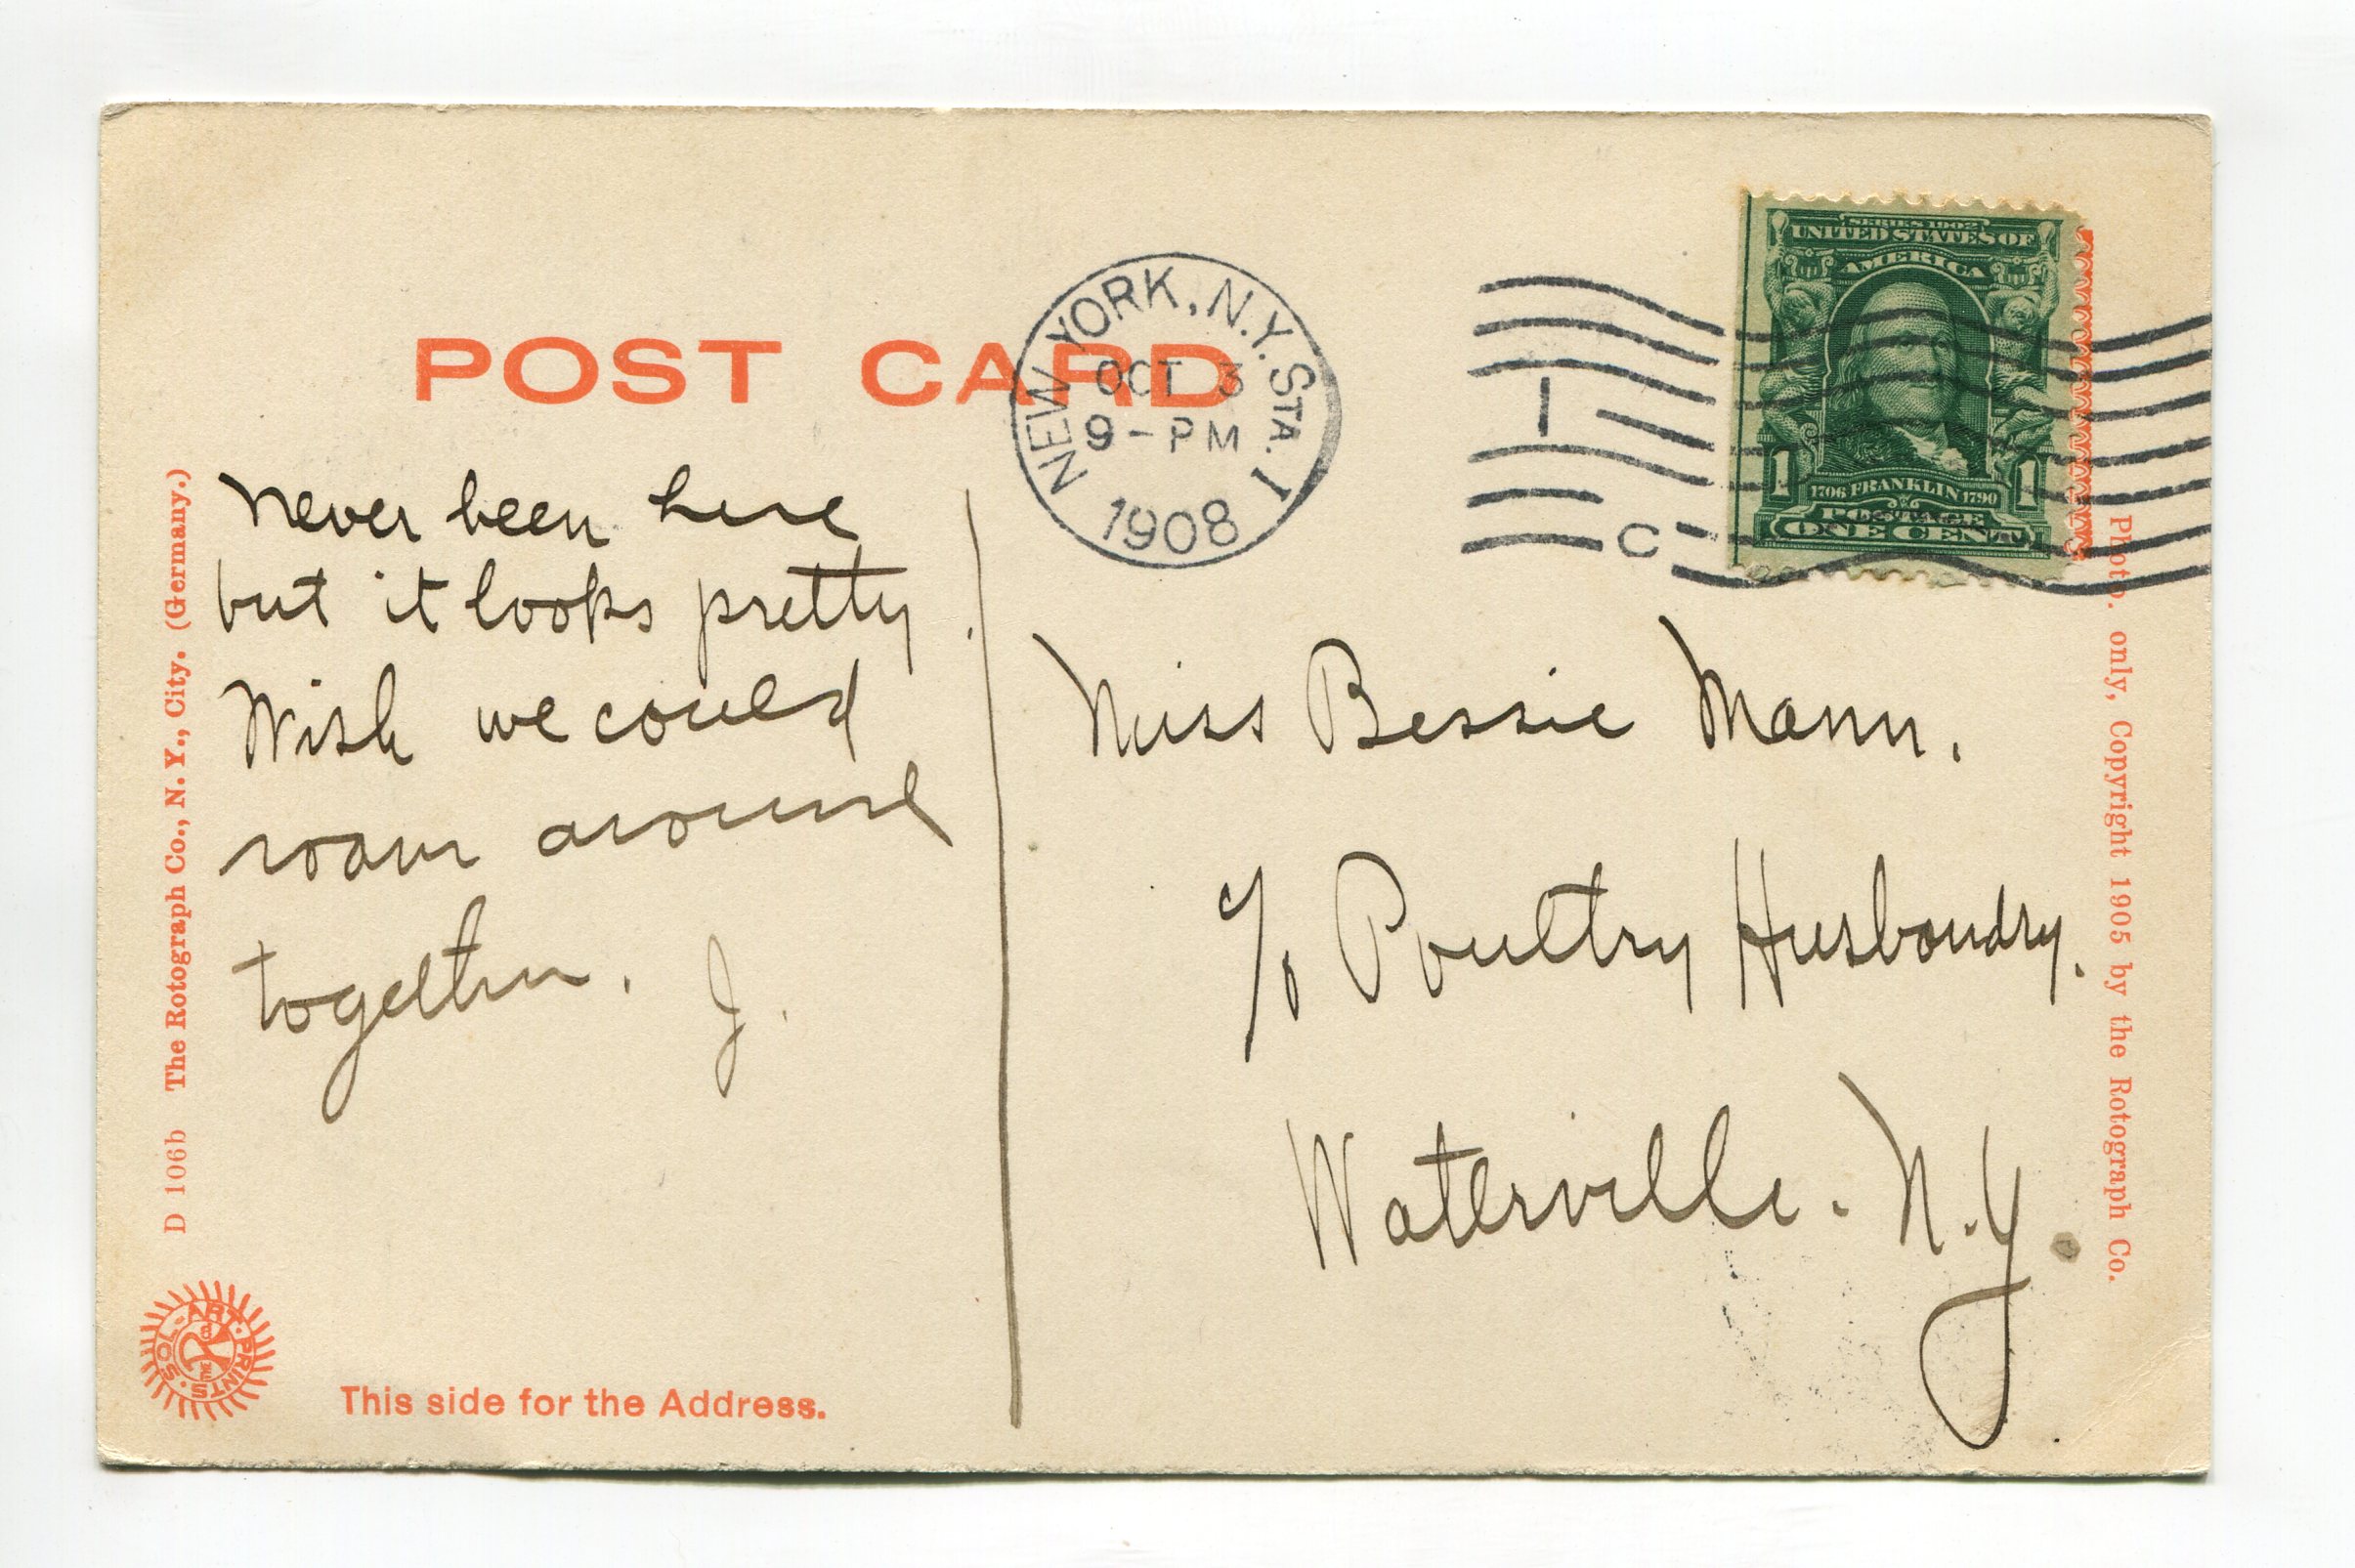 POST CARD
NEW YORK, N.Y. STA. I
OCT 3
9-PM
1908
I
C
SERIES 1902
UNITED STATES OF
AMERICA
1706 FRANKLIN 1790
1 1
POSTAGE
ONE CENT
Never been here
but it looks pretty.
Wish we could
roam around
together. J.
Miss Bessie Mann.
c/o Poultry Husbandry.
Waterville. N.Y.
D 106b The Rotograph Co., N. Y., City. (Germany.)
Photo. only, Copyright 1905 by the Rotograph Co.
SOL-ART-PRINTS
This side for the Address.